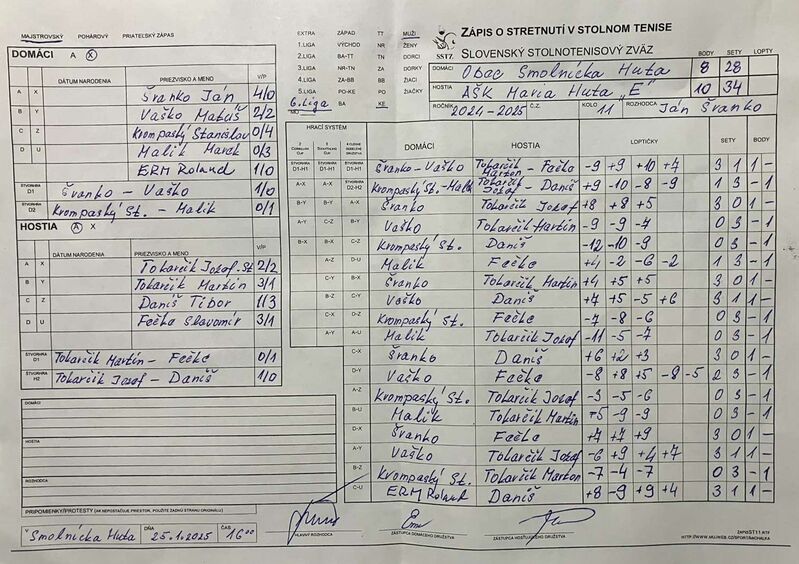 MAJSTROVSKÝ POHÁROVÝ PRIATEĽSKÝ ZÁPAS
EXTRA ZÁPAD TT MUŽI
1.LIGA VÝCHOD NR ŽENY
2.LIGA BA-TT TN DORCI
3.LIGA NR-TN ZA DORKY
4.LIGA ZA-BB BB ŽIACI
5.LIGA PO-KE PO ŽIAČKY
6.liga BA KE
MO
SSTZ
ZÁPIS O STRETNUTÍ V STOLNOM TENISE
SLOVENSKÝ STOLNOTENISOVÝ ZVÄZ
BODY SETY LOPTY
DOMÁCI: Obec Smolnícka Huta 8 28
HOSTIA AŠK Maria Huta "E" 10 34
ROČNÍK 2024-2025 Č.Z. KOLO 11 ROZHODCA Ján Švanko
DOMÁCI A X
DÁTUM NARODENIA PRIEZVISKO A MENO V/P
A X Švanko Ján 4/0
B Y Vaško Matúš 2/2
C Z Krompaský Stanislav 0/4
D U Malik Marek 0/3
ERM Roland 1/0
ŠTVORHRA D1 Švanko - Vaško 1/0
ŠTVORHRA D2 Krompaský St. - Malik 0/1
HOSTIA A X
DÁTUM NARODENIA PRIEZVISKO A MENO V/P
A X Tokarčik Jozef St. 2/2
B Y Tokarčik Martin 3/1
C Z Daniš Tibor 1/3
D U Fečke Slavomír 3/1
ŠTVORHRA D1 Tokarčik Martin - Fečke 0/1
ŠTVORHRA H2 Tokarčik Jozef - Daniš 1/0
DOMÁCI
HOSTIA
ROZHODCA
PRIPOMIENKY/PROTESTY (AK NEPOSTAČUJE PRIESTOR, POUŽITE ZADNÚ STRANU ORIGINÁLU)
V Smolnícka Huta DŇA 25.1.2025 ČAS 16:00
HRACÍ SYSTÉM
DOMÁCI HOSTIA LOPTIČKY SETY BODY
D1-H1 D1-H1 D1-H1 Švanko - Vaško Tokarčik Martin - Fečke -9 +9 +10 +7 3 1 1 -
A-X A-X D2-H2 Krompaský St. - Malik Tokarčik Jozef - Daniš +9 -10 -8 -9 1 3 - 1
B-Y B-Y A-X Švanko Tokarčik Jozef +8 +8 +5 3 0 1 -
A-Y C-Z B-Y Vaško Tokarčik Martin -9 -9 -7 0 3 - 1
B-X B-X C-Z Krompaský St. Daniš -12 -10 -9 0 3 - 1
A-Z D-U Malik Fečke +4 -2 -6 -2 1 3 - 1
C-Y B-X Švanko Tokarčik Martin +4 +5 +5 3 0 1 -
B-Z C-Y Vaško Daniš +7 +5 -5 +6 3 1 1 -
C-X D-Z Krompaský St. Fečke -7 -8 -6 0 3 - 1
A-Y A-U Malik Tokarčik Jozef -11 -5 -7 0 3 - 1
C-X Švanko Daniš +6 +2 +3 3 0 1 -
D-Y Vaško Fečke -8 +8 +5 -8 -5 2 3 - 1
A-Z Krompaský St. Tokarčik Jozef -3 -5 -6 0 3 - 1
B-U Malik Tokarčik Martin -5 -9 -9 0 3 - 1
D-X Švanko Fečke +7 +7 +9 3 0 1 -
A-Y Vaško Tokarčik Jozef -6 +9 +4 +7 3 1 1 -
B-Z Krompaský St. Tokarčik Martin -7 -4 -7 0 3 - 1
C-U ERM Roland Daniš +8 -9 +9 +4 3 1 1 -
HLAVNÝ ROZHODCA ZÁSTUPCA DOMÁCEHO DRUŽSTVA ZÁSTUPCA HOSŤUJÚCEHO DRUŽSTVA
ZAPISST11.RTF
HTTP://WWW.MUJWEB.CZ/SPORT/MICHALKA